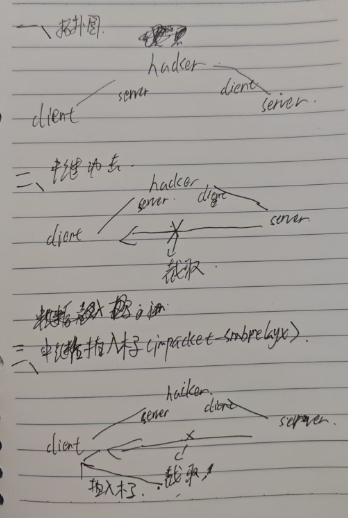 一、拓扑图.
hacker
server client
client server.
二、中继攻击.
hacker
server.
client server.
截取.
三、中继插入木马(impacket-smbrelayx).
hacker
server client
client server.
插入木马. 截取